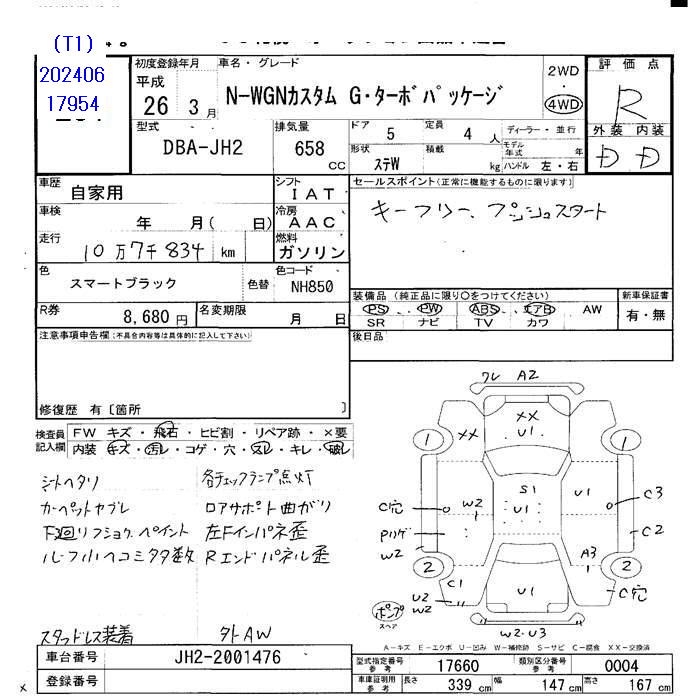 (T1)
202406
17954
初度登録年月
平成
26 3 月
車名・グレード
N-WGNカスタム G・ターボパッケージ
2WD
・
4WD
評価点
R
外装 内装
D D
型式
DBA-JH2
排気量
658 CC
ドア 5
定員 4 人
ディーラー・並行
形状 ステW
積載 kg
モデル年式 年
ハンドル 左・右
車歴 自家用
シフト IAT
車検 年 月( 日)
冷房 AAC
走行 10万7千834 km
燃料 ガソリン
色 スマートブラック 色替
色コード NH850
R券 8,680円
名変期限 月 日
セールスポイント(正常に機能するものに限ります)
キーフリー、プッシュスタート
装備品(純正品に限り○をつけてください)
PS ・ PW ・ ABS ・ エアB ・ AW
SR ナビ TV カワ
新車保証書
有・無
後日品
注意事項申告欄(不具合内容等は具体的に記入して下さい)
修復歴 有〔箇所 〕
検査員記入欄
FW キズ・飛石・ヒビ割・リペア跡・×要
内装 キズ・汚レ・コゲ・穴・スレ・キレ・破レ
シートヘタリ
カーペットヤブレ
下廻リフショク、ペイント
ルーフ小ヘコミタタ数
スタッドレス装着
各チェックランプ点灯
ロアサポート曲がり
左Fインパネ歪
Rエンドパネル歪
外AW
ワレ A2
XX
U1
XX
1
1
S1
U1
U1
C穴
W2
C3
Pハゲ
W2
C2
A3
2
2
C1
U1
C穴
U2
W2
W2・U3
ポンプ
スペア
A−キズ E−エクボ U−凹み W−補修跡 S−サビ C−腐食 XX−交換済
車台番号 JH2-2001476
登録番号
型式指定番号 参考 17660
類別区分番号 参考 0004
車車証明用 参考 長さ 339 cm 幅 147 cm 高さ 167 cm